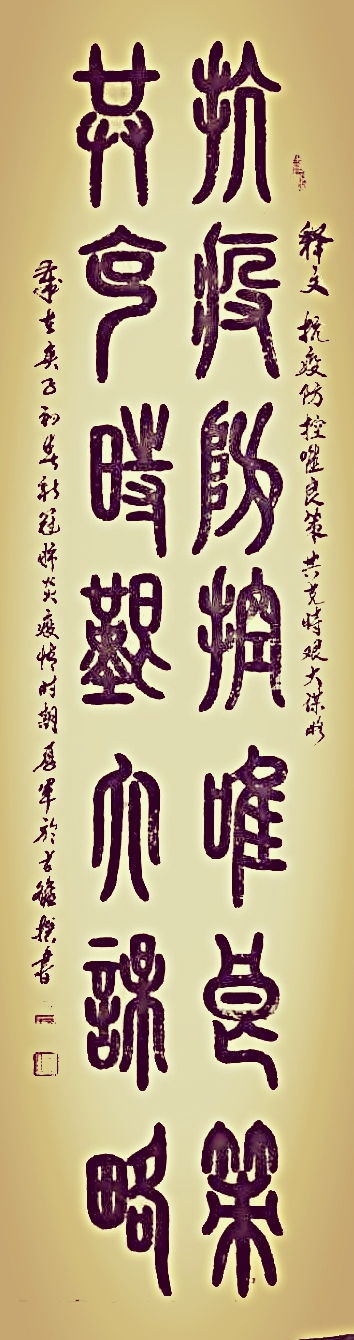 释文 抗疫防控唯良策 共克时艰大谋略
抗疫防控唯良策
共克時艱大謀略
歲在庚子初春新冠肺炎疫情时期 军於古 撰書